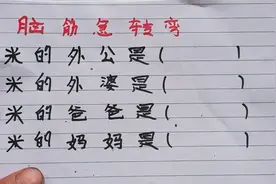 脑筋急转弯
米的外公是(    )
米的外婆是(    )
米的爸爸是(    )
米的妈妈是(    )